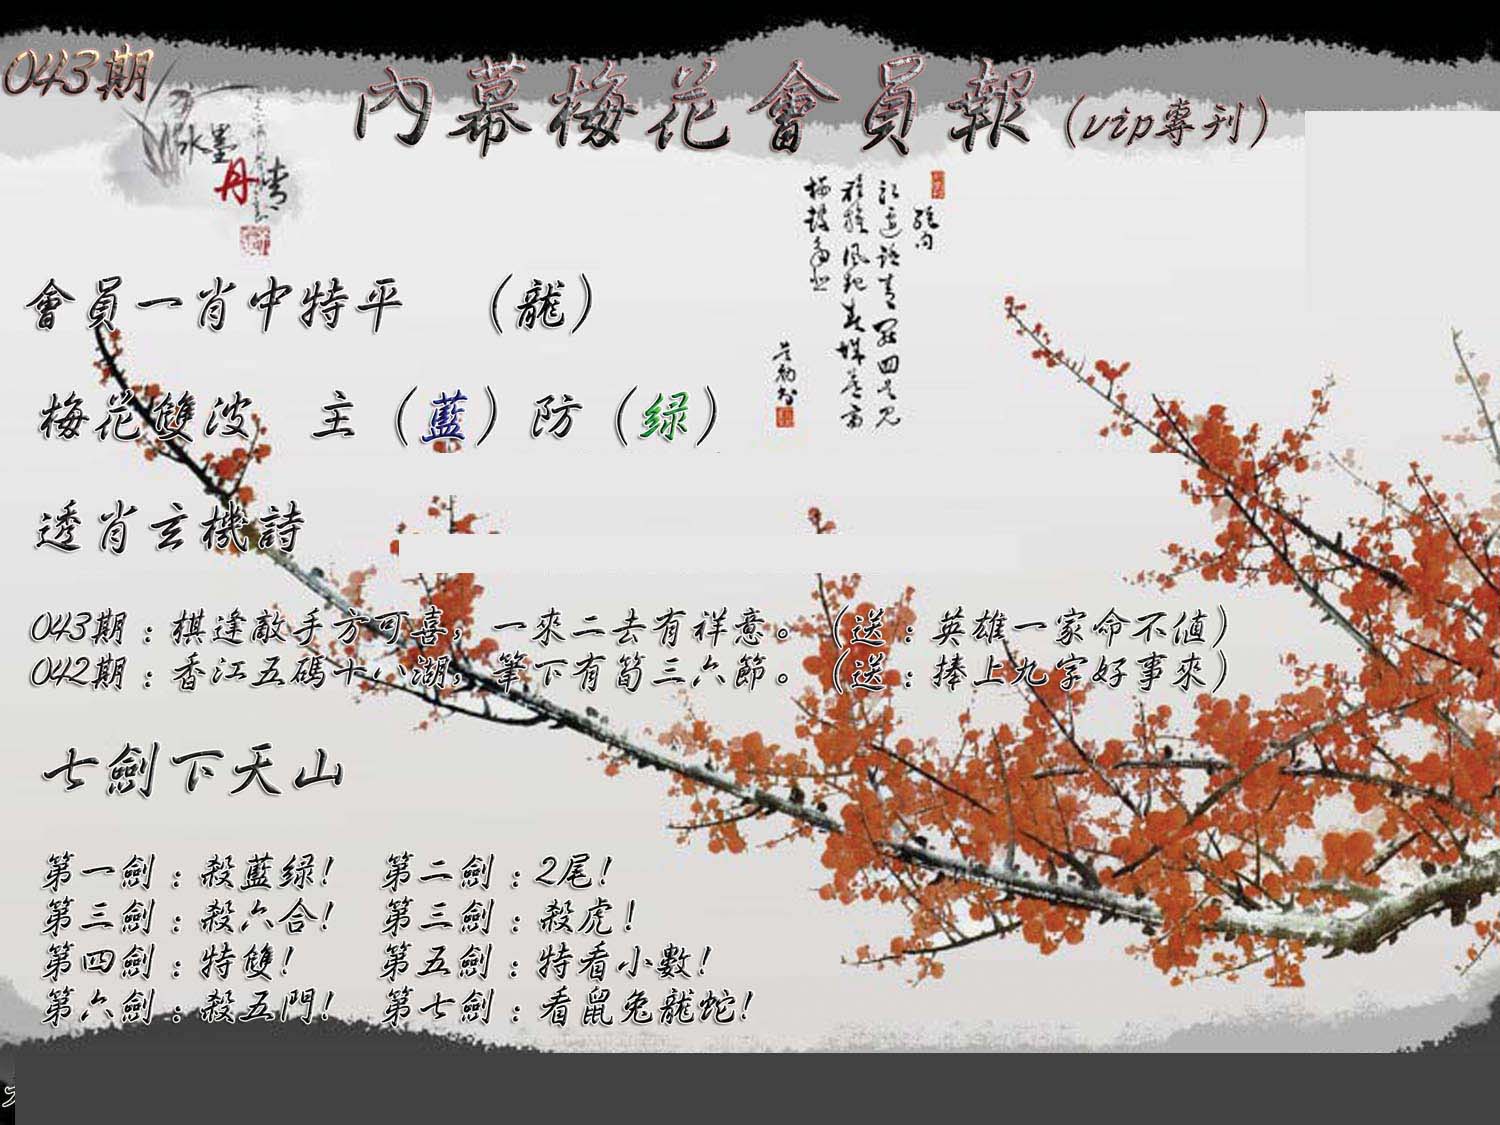 043期
內幕梅花會員報（vip專刊）
水墨
丹青
會員一肖中特平　（龍）
梅花雙波　主（藍）防（绿）
透肖玄機詩
043期：棋逢敵手方可喜，一來二去有祥意。（送：英雄一家命不值）
042期：香江五碼十八湖，筆下有筍三六節。（送：捧上九字好事來）
七劍下天山
第一劍：殺藍绿！　第二劍：2尾！
第三劍：殺六合！　第三劍：殺虎！
第四劍：特雙！　第五劍：特看小數！
第六劍：殺五門！　第七劍：看鼠兔龍蛇！